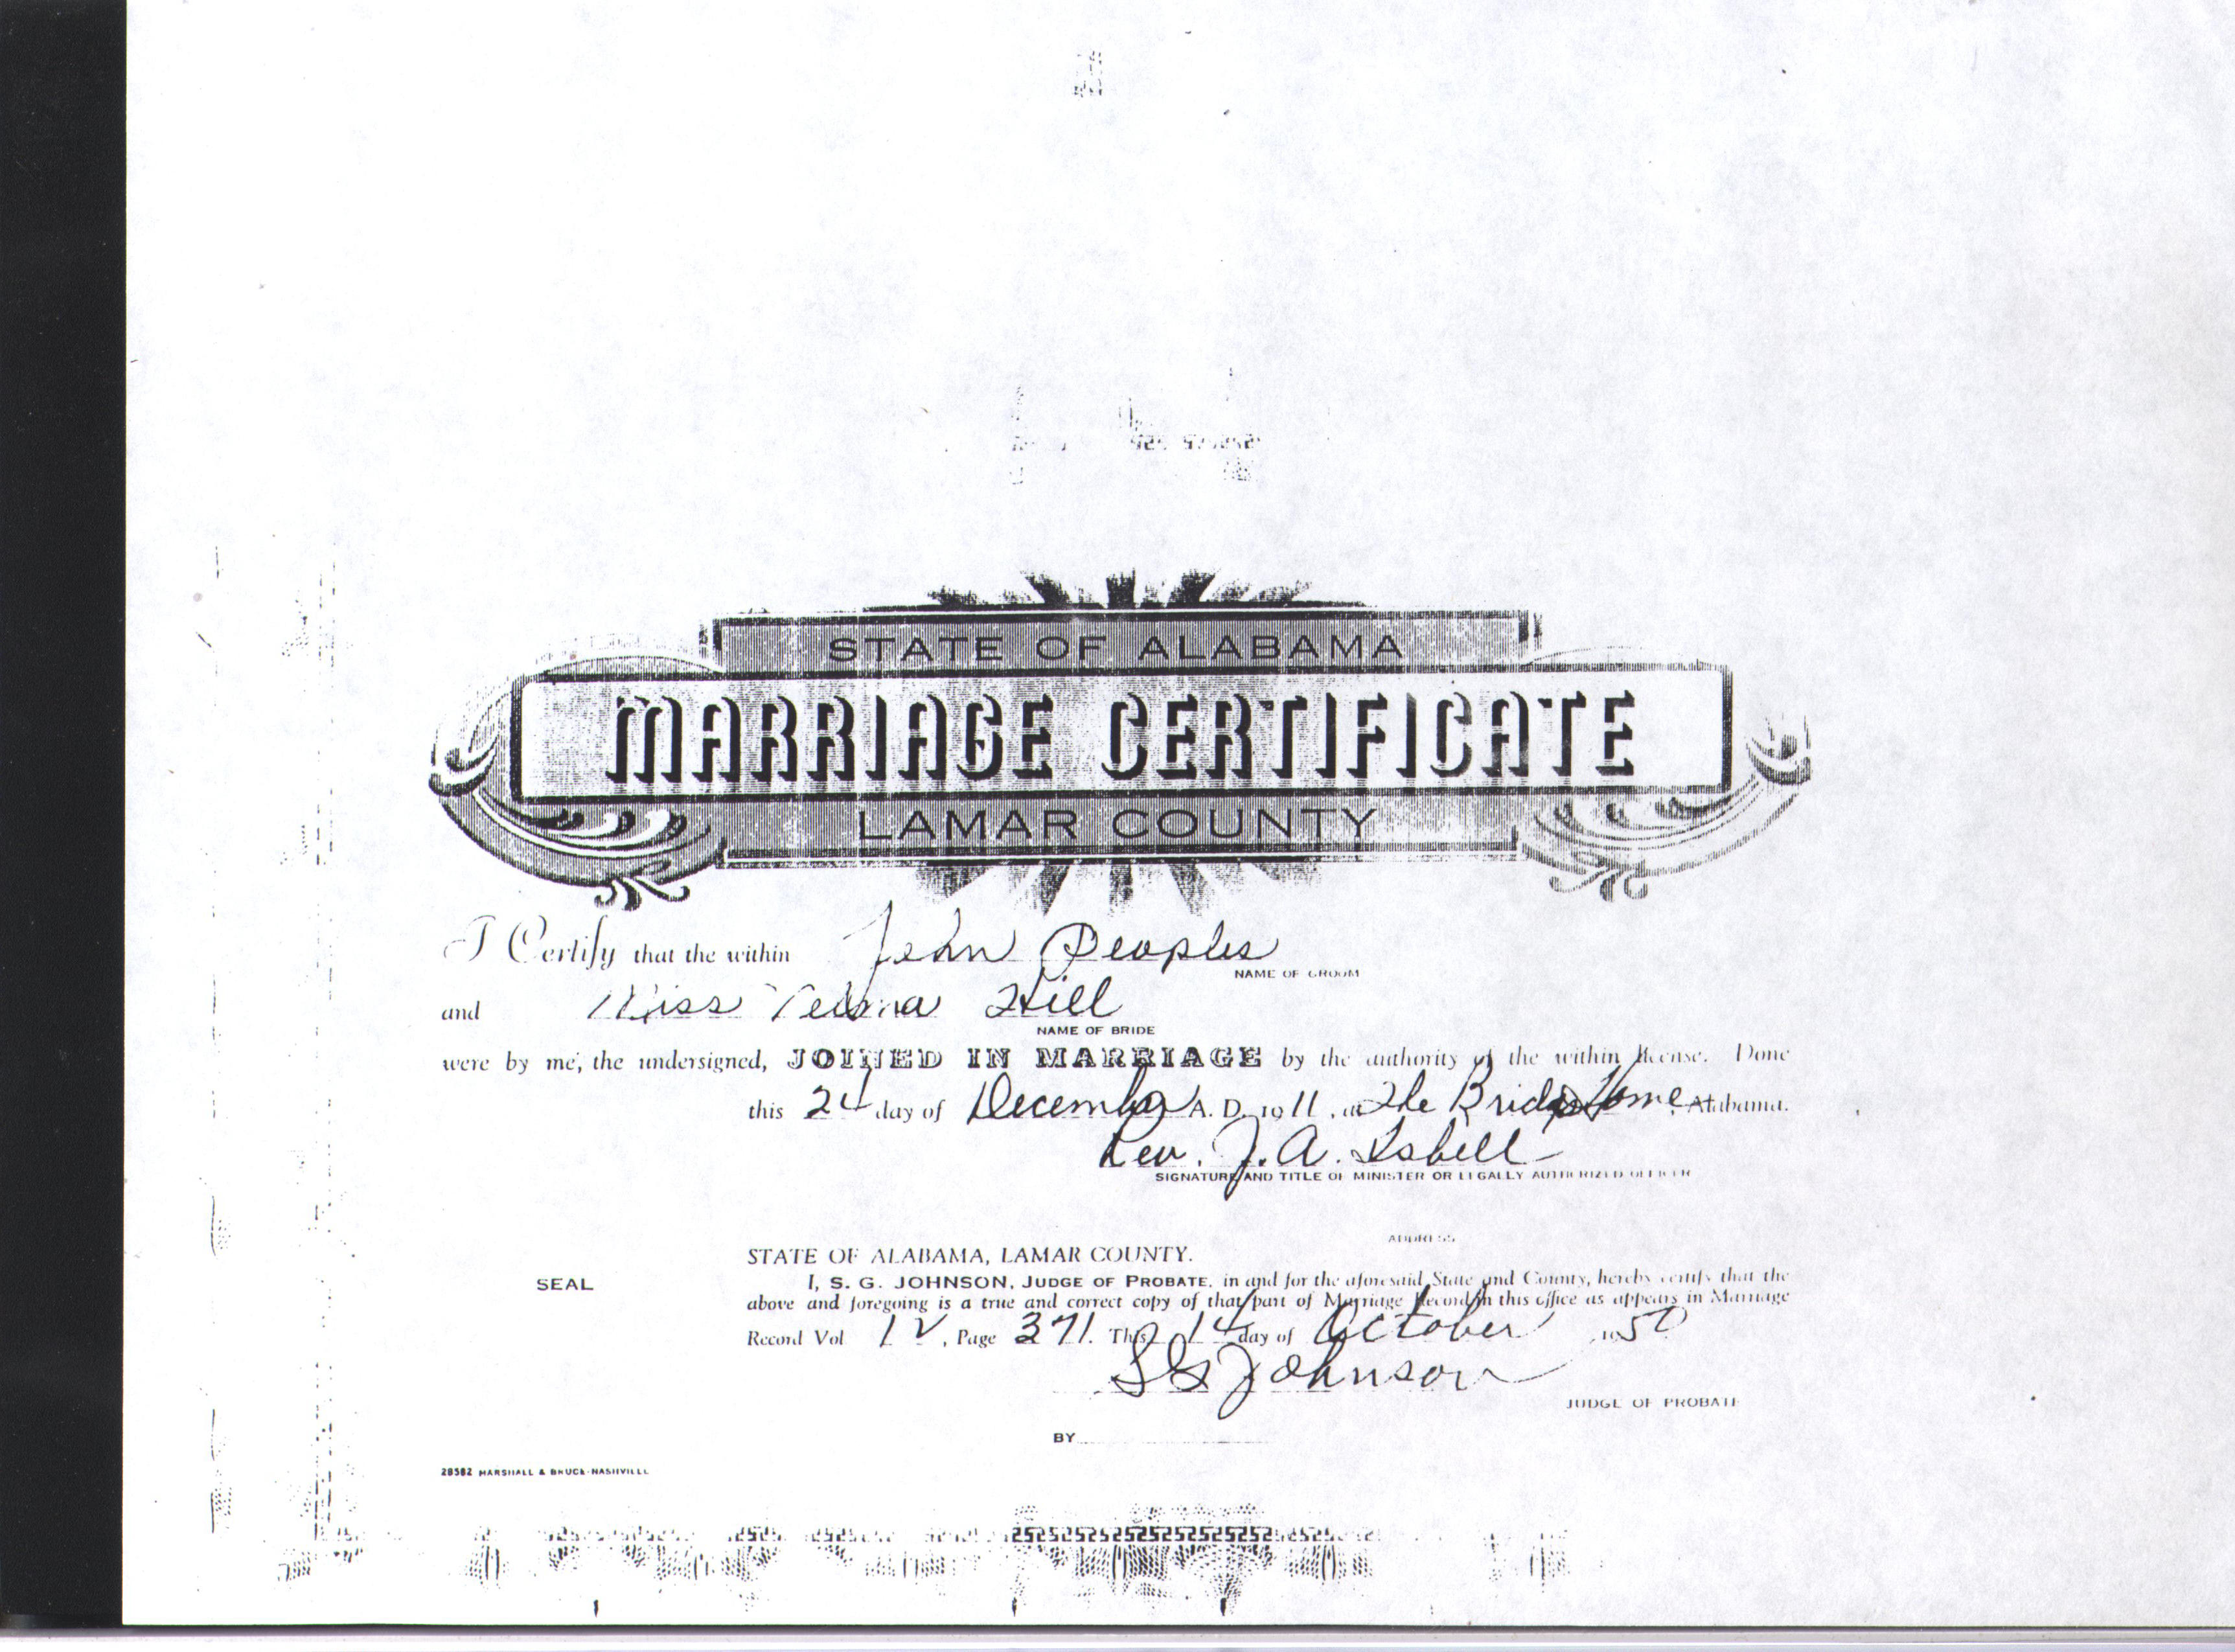 STATE OF ALABAMA
MARRIAGE CERTIFICATE
LAMAR COUNTY
I Certify that the within John Peoples
NAME OF GROOM
and Miss Hill
NAME OF BRIDE
were by me, the undersigned, JOINED IN MARRIAGE by the authority of the within license. Done
this 24 day of December A. D. 1911, at The Brides Home, Alabama.
Rev. J. A. Isbell
SIGNATURE AND TITLE OF MINISTER OR LEGALLY AUTHORIZED OFFICER
ADDRESS
STATE OF ALABAMA, LAMAR COUNTY.
SEAL
I, S. G. JOHNSON, JUDGE OF PROBATE, in and for the aforesaid State and County, hereby certify that the
above and foregoing is a true and correct copy of that part of Marriage Record in this office as appears in Marriage
Record Vol 12, Page 371. This 14 day of October 1950
S G Johnson
JUDGE OF PROBATE
BY
28582 MARSHALL & BRUCE-NASHVILLE